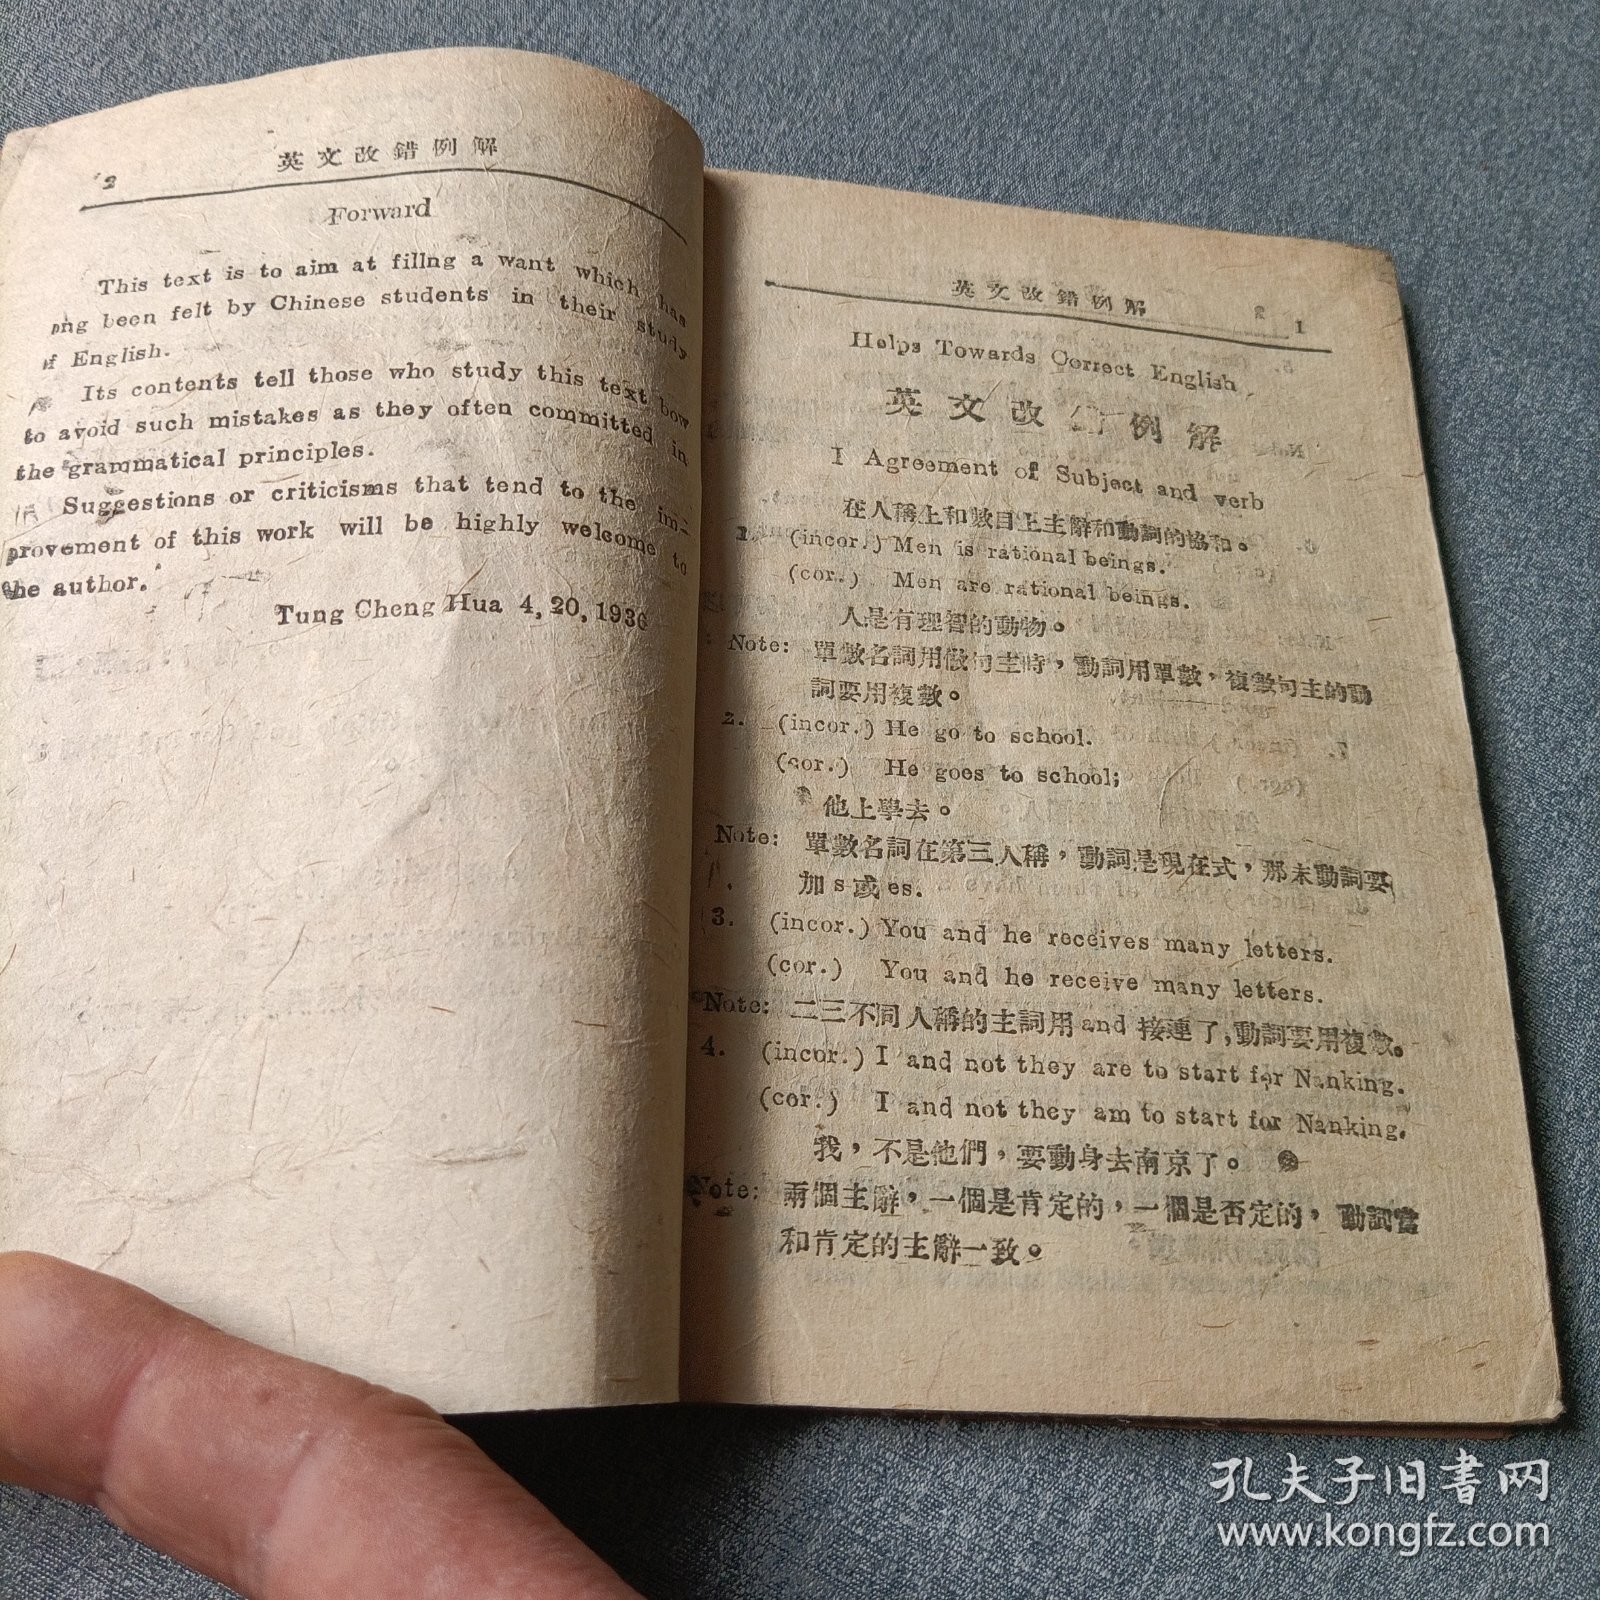 英文改錯例解
2
Forward
This text is to aim at fillng a want which has
ong been felt by Chinese students in their study
of English.
Its contents tell those who study this text how
to avoid such mistakes as they often committed in
the grammatical principles.
Suggestions or criticisms that tend to the im-
provement of this work will be highly welcome to
the author.
Tung Cheng Hua 4, 20, 1936
英文改錯例解 2 1
Helps Towards Correct English
英文改 例解
I Agreement of Subject and verb
在人稱上和數目上主辭和動詞的協和。
1. (incor.) Men is rational beings.
(cor.) Men are rational beings.
人是有理智的動物。
Note: 單數名詞用做句主時，動詞用單數，複數句主的動
詞要用複數。
2. (incor.) He go to school.
(cor.) He goes to school;
他上學去。
Note: 單數名詞在第三人稱，動詞是現在式，那末動詞要
加s或es.
3. (incor.) You and he receives many letters.
(cor.) You and he receive many letters.
Note: 二三不同人稱的主詞用and接連了,動詞要用複數。
4. (incor.) I and not they are to start for Nanking.
(cor.) I and not they am to start for Nanking.
我，不是他們，要動身去南京了。
Note: 兩個主辭，一個是肯定的，一個是否定的，動詞當
和肯定的主辭一致。
孔夫子旧书网
www.kongfz.com